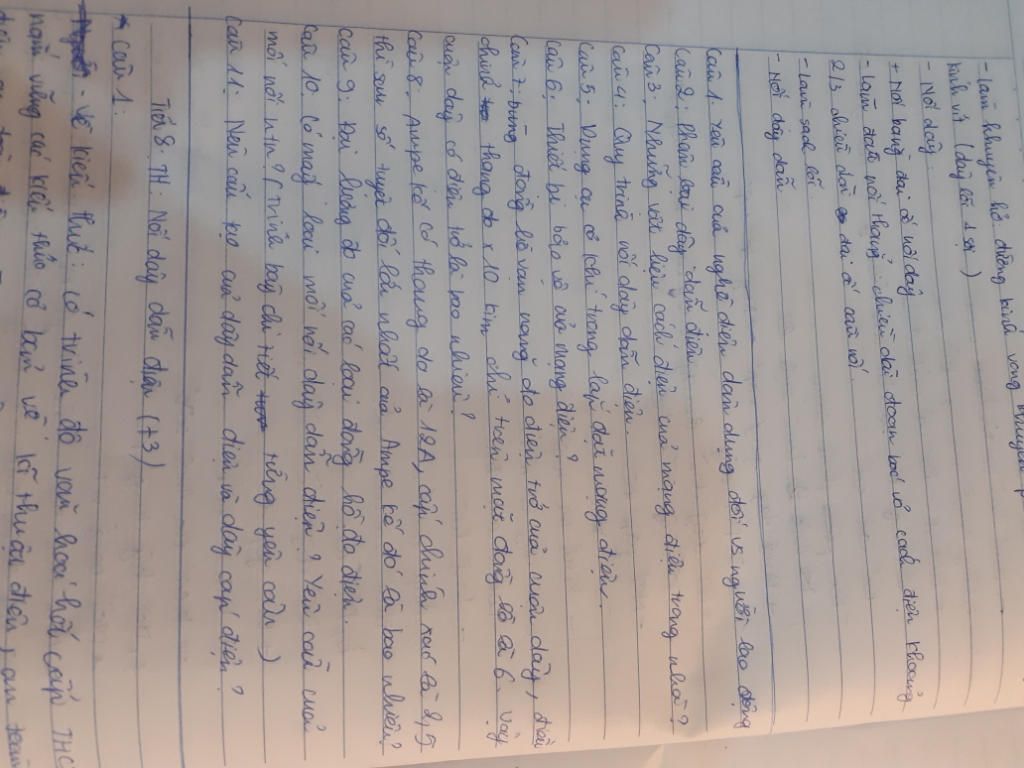 - Làm khuyên hở dùng kìm
kính vít (dây lõi 1 sợi)
- Nối dây:
+ Nối bằng đai ốc nối dây
- Làm đầu nối thẳng chiều dài đoạn bóc vỏ cách điện khoảng
2/3 chiều dài đai ốc
- Làm sạch lõi.
- Nối dây dẫn
Câu 1. Yêu cầu của nghề điện dân dụng đối vs người lao động
Câu 2. Phân loại dây dẫn điện.
Câu 3. Những vật liệu cách điện của mạng điện trong nhà?
Câu 4. Quy trình nối dây dẫn điện.
Câu 5. Dụng cụ cơ khí trong lắp đặt mạng điện.
Câu 6. Thiết bị bảo vệ của mạng điện?
Câu 7. bằng đồng hồ vạn năng đo điện trở của cuộn dây, điều
chỉnh thang đo x10 kim chỉ trên mặt đồng hồ là 6. Vậy
cuộn dây có điện trở là bao nhiêu?
Câu 8. Ampe kế có thang đo là 12A, cấp chính xác là 2,5
thì sai số tuyệt đối lớn nhất của Ampe kế đó là bao nhiêu?
Câu 9. Đại lượng đo của các loại đồng hồ đo điện.
Câu 10. Có mấy loại mối nối dây dẫn điện? Yêu cầu của
mối nối (trình bày chi tiết từng yêu cầu)
Câu 11. Nêu cấu tạo của dây dẫn điện và dây cáp điện?
Tiết 8: TH: Nối dây dẫn điện (t3)
* Câu 1:
- Về kiến thức: có trình độ văn hoá hết cấp THC
nắm vững các kiến thức cơ bản về kĩ thuật điện, an toàn